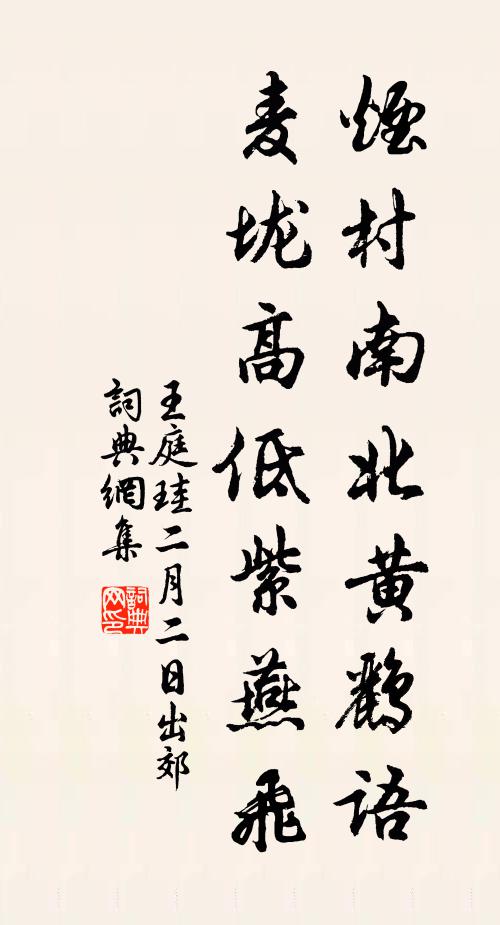 煙村南北黃鸝語
麦垅高低紫燕飛
王庭珪二月二日出郊
詞典網集
詞典
网印